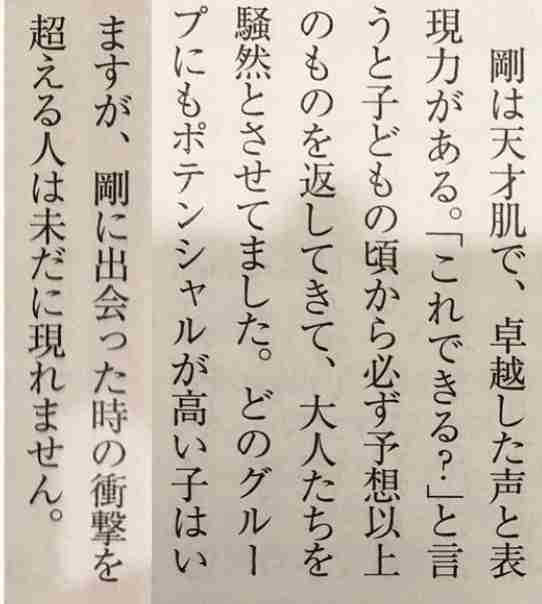 剛は天才肌で、卓越した声と表
現力がある。「これできる?」と言
うと子どもの頃から必ず予想以上
のものを返してきて、大人たちを
騒然とさせてました。どのグルー
プにもポテンシャルが高い子はい
ますが、剛に出会った時の衝撃を
超える人は未だに現れません。